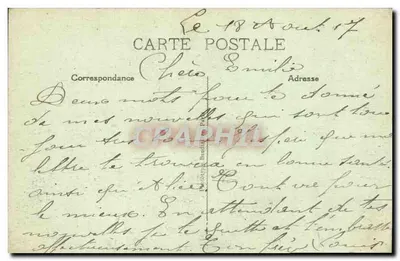 Le 18 Aout 17
CARTE POSTALE
Correspondance
Adresse
Chère Emilie
Deux mots pour te donné
de mes nouvelles qui sont tou
jour bonne J'espère que ma
lettre te trouvera en bonne santé
ainsi qu' Tout va pour
le mieux. En attendant de tes
nouvelles je te quitte et t'embrasse
affectueusement Ton frère Louis